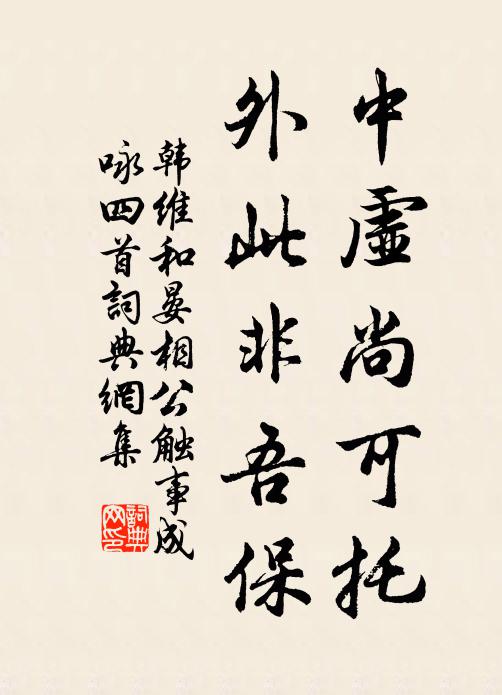 中虛尚可托
外此非吾保
韩维和晏相公触事成
咏四首詞典網集
詞典
网印